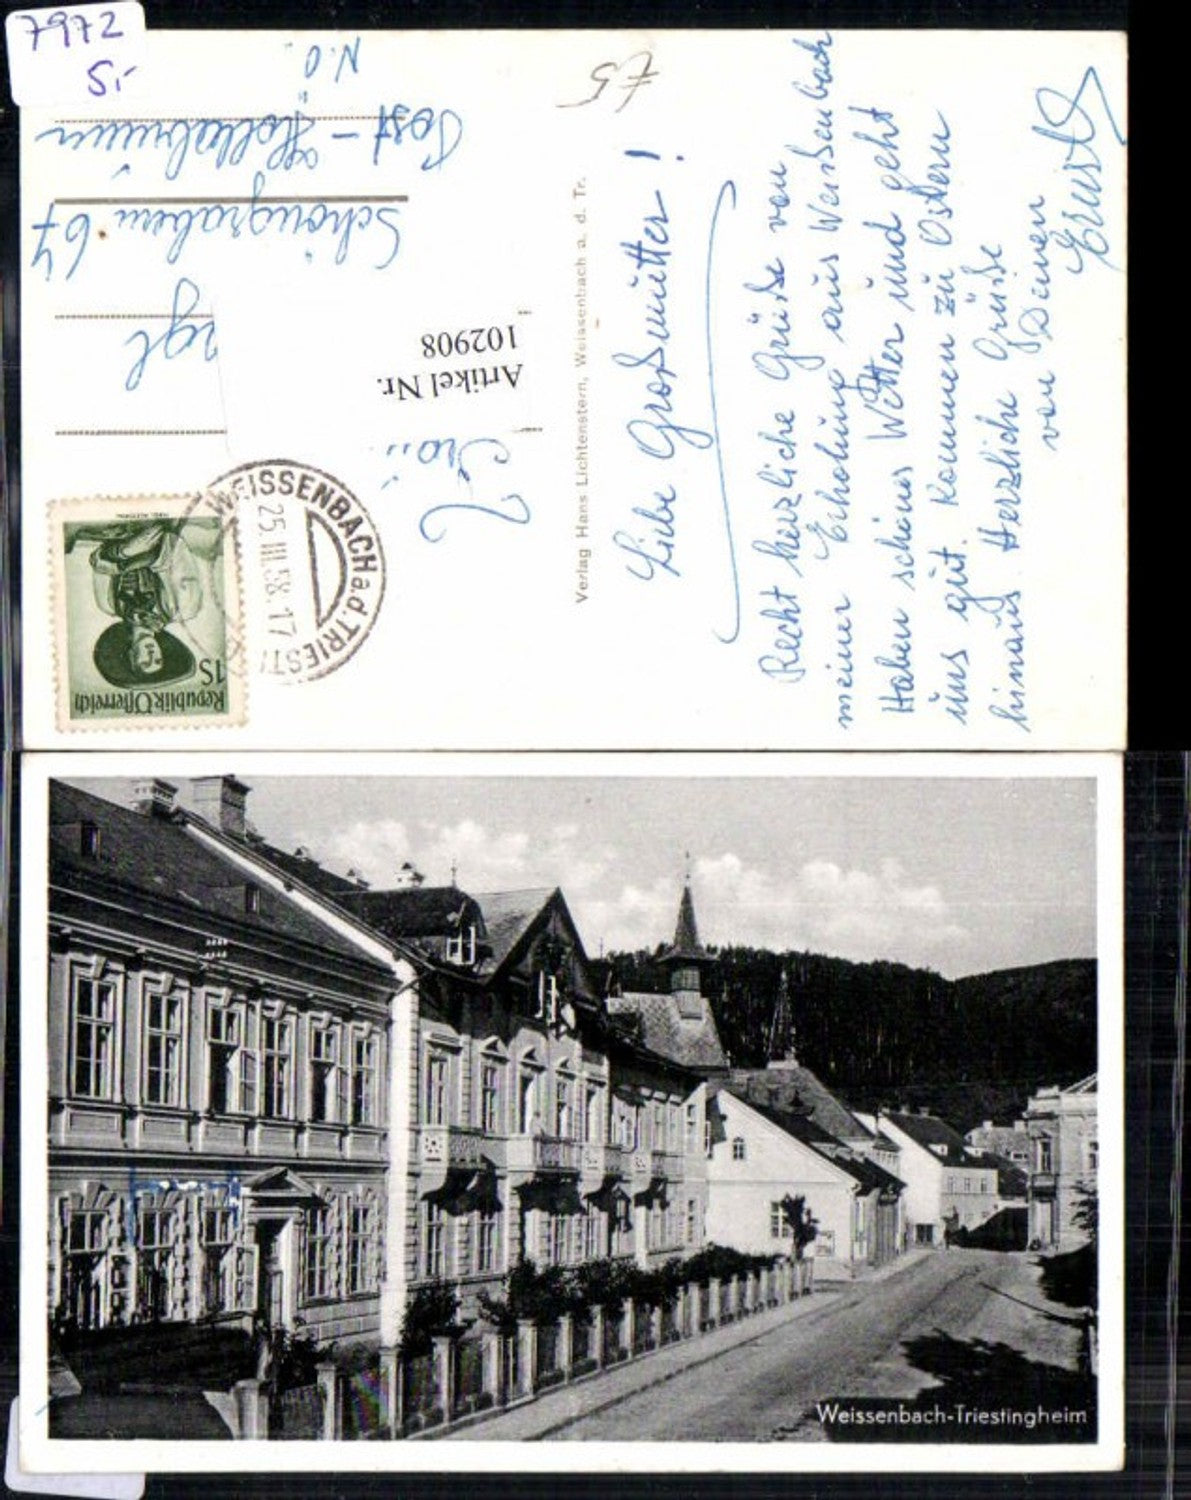 7972
S,-
Liebe Großmutter!
Recht herzliche Grüße von
meiner Erholung aus Weißenbach
Haben schönes Wetter und geht
uns gut. Kommen zu Ostern
hinaus Herzliche Grüße
von Deinen
Ernst
£5
Verlag Hans Lichtenstern, Weissenbach a. d. Tr.
Republik Österreich
1S
WEISSENBACH a.d. TRIEST
25.III.58.17
Artikel Nr.
102908
Schöngrabern 67
Post-Hollabrunn
N.Ö.
Weissenbach-Triestingheim